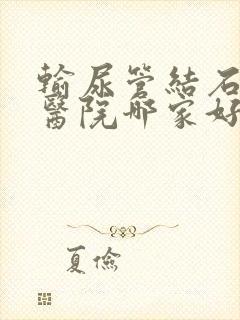 輸尿管結石
醫院哪家好
夏儉